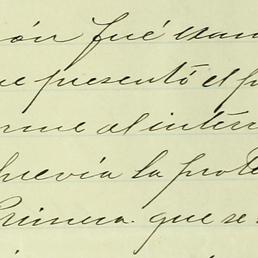 ón fué exam
ue presentó el p
orme al interr
Previa la prote
Primera. que se